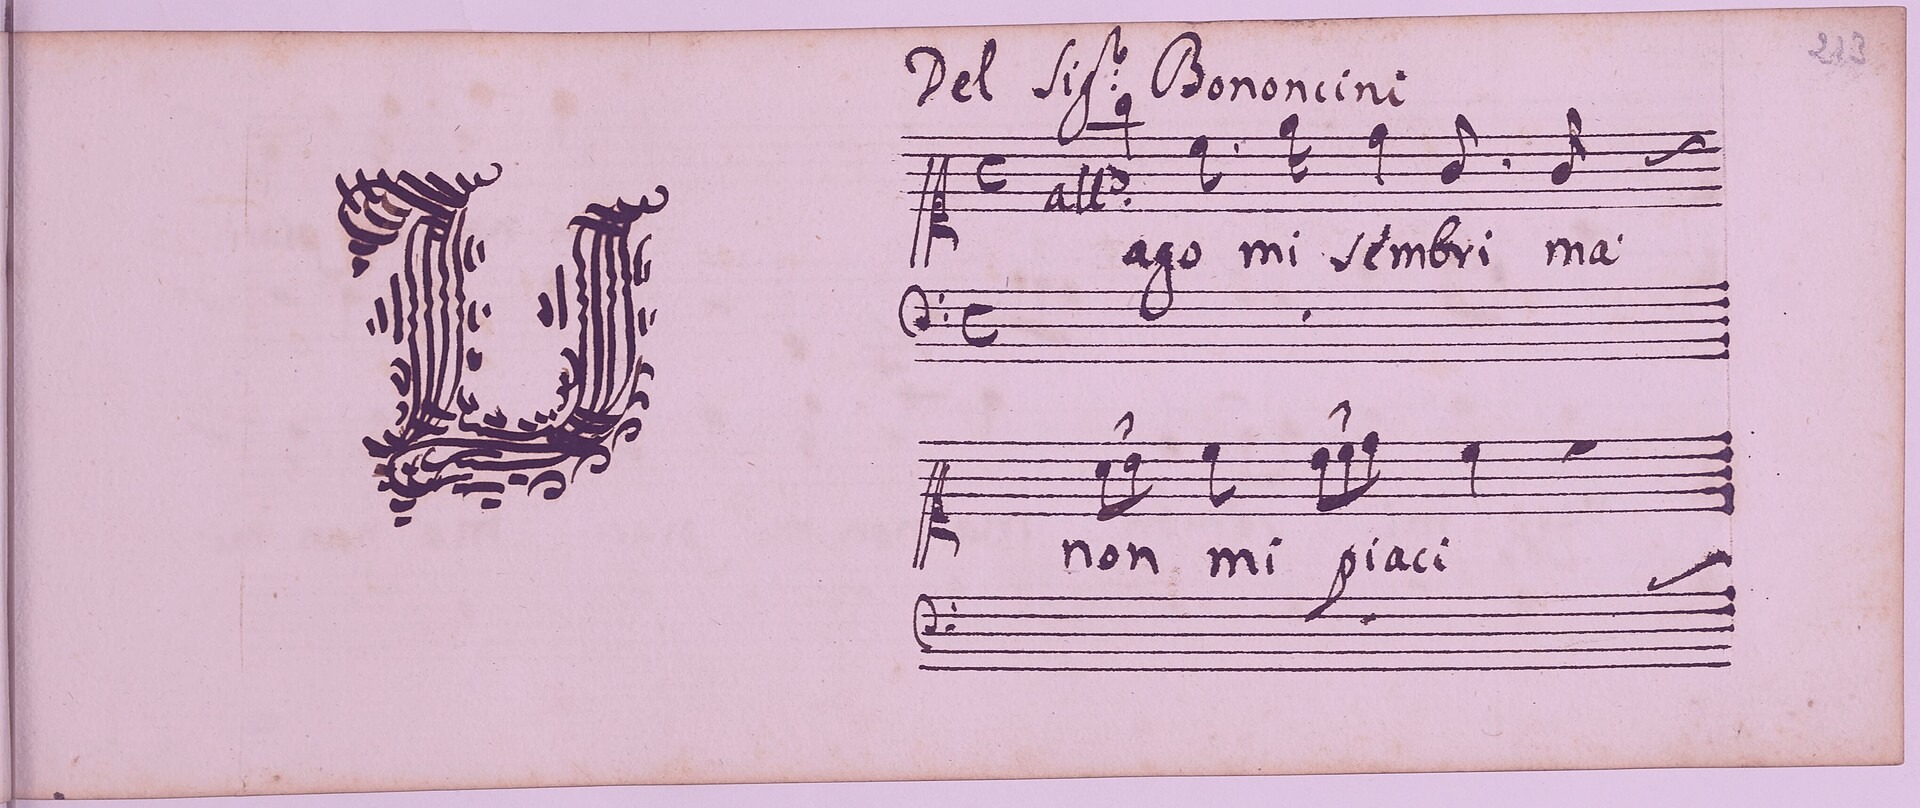 213
Del Sig.r Bononcini
U
all.o
ago mi sembri ma
non mi piaci